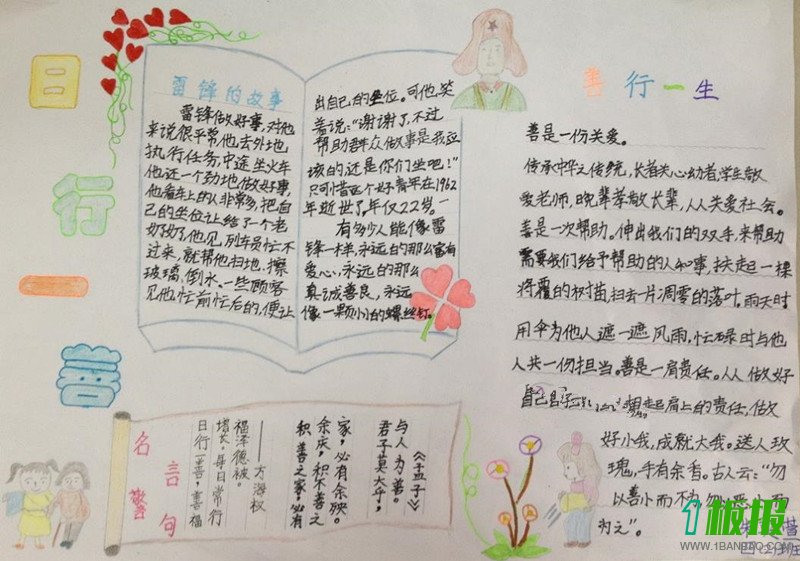 日
行
一
善
雷锋的故事
雷锋做好事,对他
来说很平常他去外地
执行任务,中途坐火车
他还一个劲地做好事,
他看车上的人非常多,把自
己的坐位让给了一个老
奶奶,他见列车员忙不
过来,就帮他扫地.擦
玻璃,倒水。一些顾客
见他忙前忙后的,便让
出自己的坐位。可他笑
着说:“谢谢了,不过
帮助群众做事是我应
该的,还是你们坐吧!”
只可惜这个好青年在1962
年逝世了,年仅22岁。
有多少人能像雷
锋一样,永远的那么富有
爱心,永远的那么
真诚善良,永远
像一颗小小的螺丝钉
善行一生
善是一份关爱。
传承中华之传统,长者关心幼者,学生敬
爱老师,晚辈孝敬长辈,人人关爱社会。
善是一次帮助。伸出我们的双手,来帮助
需要我们给予帮助的人和事,扶起一棵
将覆的树苗,扫去一片凋零的落叶。雨天时
用伞为他人遮一遮风雨,忙碌时与他
人共一份担当。善是一肩责任。人人做好
自己 起肩上的责任,做
好小我,成就大我。送人玫
瑰,手有余香。古人云:“勿
以善小而不为 勿以恶小而
为之”。
名言警句
《孟子》
与人为善。
君子莫大乎,
家,必有余殃。
余庆,积不善之
积善之家,必有
——方海权
福泽德被。
增长。每日常行
日行一善,善福
1板报
WWW.1BANBAO.COM